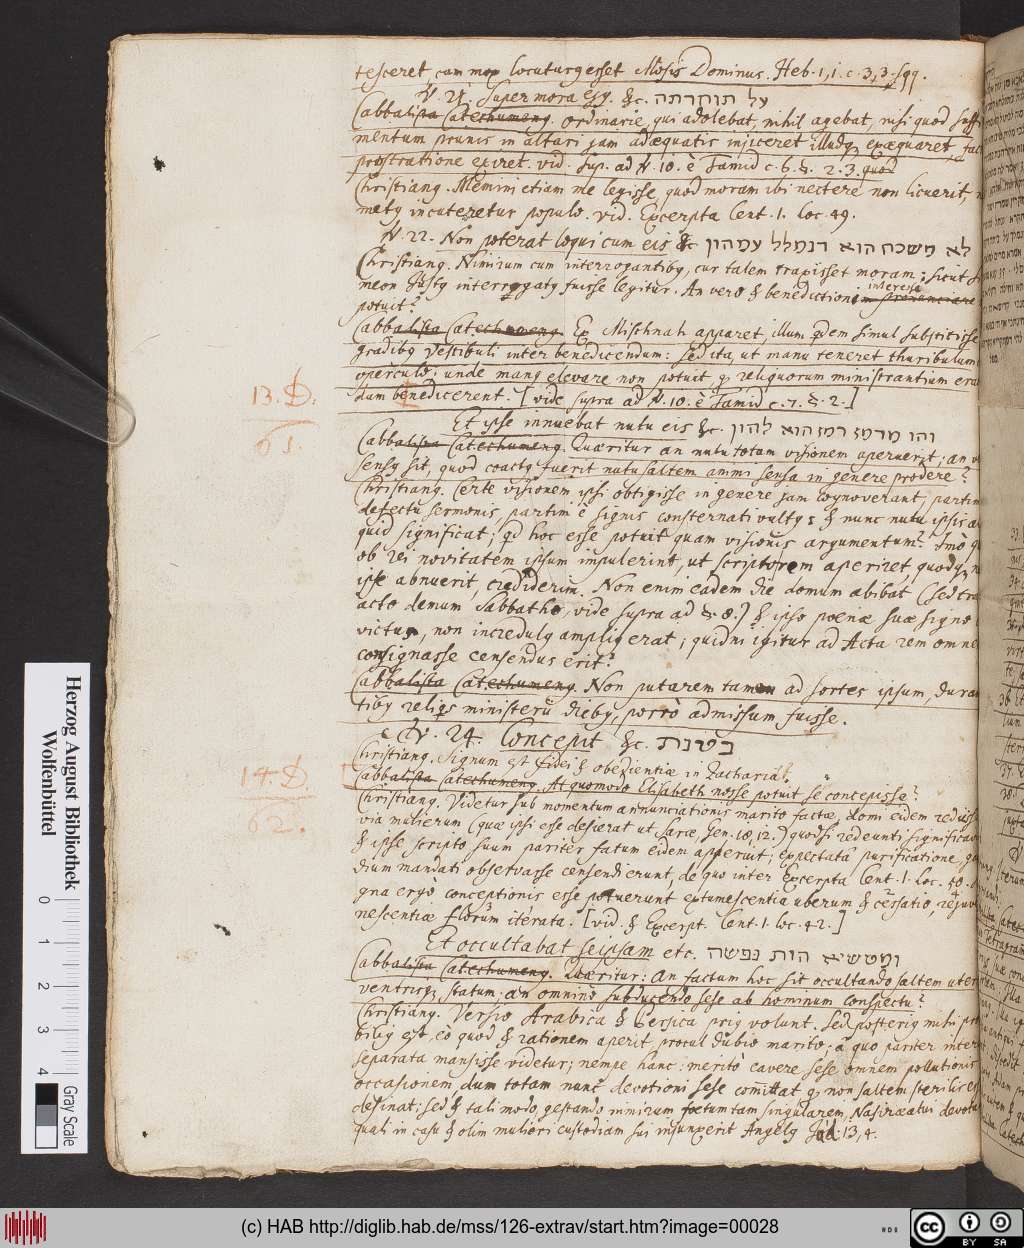 tesceret, cum mox locuturus esset Mosis Dominus. Heb. 1, 1. c. 3, 3. sqq.
V. 21. Super mora ejus. &c. על תוקרתה
Cabbalista Catechumenus. Ordinarie, qui adolebat, nihil agebat, nisi quod suffi
mentum prunis in altari jam adæquatis injiceret illudq; exæquaret,
prostratione exiret. vid. sup. ad V. 10. è Tamid c. 6. §. 2. 3. quod
Christianus. Memini etiam me legisse, quod moram ibi nectere non licuerit,
metus incuteretur populo. vid. Excerpta Cent. 1. Loc. 49.
V. 22. Non poterat loqui cum eis &c לא משכח הוא דנמלל עמהון
Christianus. Nimirum cum interrogantibus, cur talem traxisset moram; sicut Si
meon Justus interrogatus fuisse legitur. An vero & benedictioni interesse
potuit?
Cabbalista Catechumenus. Ex Mischnah apparet, illum qdem simul substitisse
gradibus Vestibuli inter benedicendum: sed ita, ut manu teneret thuribulum
operculo: unde manus elevare non potuit, q; reliquorum ministrantium erat
dum benedicerent. [vide supra ad V. 10. è Tamid c. 7. §. 2.]
13. D.
61.
Et ipse innuebat nutu eis &c. והו מרמז רמז הוא להון
Cabbalista Catechumenus. Quæritur an nutu totam visionem aperuerit; an v
sensus sit, quod coactus fuerit nutu saltem animi sensa in genere prodere?
Christianus. Certe visionem ipsi obtigisse in genere jam cognoverant, partim
defectu sermonis, partim è signis consternati vultus; & nunc nutu ipsis
quid significat; qd hoc esse potuit quam visionis argumentum? Imò
ob rei novitatem ipsum impulerint, ut scriptorem aperiret, quodq;
ipse abnuerit, crediderim. Non enim eadem die domum abibat (sed tra
acto demum Sabbatho, vide supra ad §. 8.) & ipso poenæ suæ signo
victus, non incredulus amplius erat; quidni igitur ad Acta rem omnem
consignasse censendus erit?
Cabbalista Catechumenus. Non putarem tamen ad sortes ipsum, duran
tibus reliqs ministerii diebus, porrò admissum fuisse.
V. 24. Concepit &c. בטנת
Christianus. Signum est fidei & obedientiæ in Zacharia.
14. D.
62.
Cabbalista Catechumenus. At quomodo Elisabeth nosse potuit se concepisse?
Christianus. Videtur sub momentum annunciationis marito factæ, domi eidem rediisse
via mulierum (quæ ipsi esse desierat ut Saræ, Gen. 18, 12.) quodsi redeunti significav
& ipse scripto suum pariter fatum eidem aperuit; expectatâ purificatione,
dium mandati observasse censendi erunt, de quo inter Excerpta Cent. 1. Loc. 40.
gna ergò conceptionis esse potuerunt extumescentia uberum & cessatio, reju
nescentiæ florum iterata. [vid. & Excerpt. Cent. 1. Loc. 42.]
Et occultabat seipsam etc. ומטשיא הות נפשה
Cabbalista Catechumenus. Quæritur: an factum hoc sit occultando saltem uteri
ventrisq; statum: an omninò subducendo sese ab hominum conspectu?
Christianus. Versio Arabica & Persica prius volunt. Sed posterius mihi pro
bilius est, eò quod & rationem aperit, procul dubio marito; à quo pariter interi
separata mansisse videtur; nempe hanc: meritò cavere sese omnem pollutionis
occasionem dum totam nunc devotioni sese comittat, q; non saltem sterilis es
desinat; sed & tali modo, gestando nimirum foetum tam singularem, Nasiræatui devotu
quali in casu & olim mulieri custodiam sui injunxerit Angelus Jud. 13, 4.
Herzog August Bibliothek
Wolfenbüttel
0 1 2 3 4
Gray Scale
(c) HAB http://diglib.hab.de/mss/126-extrav/start.htm?image=00028
WDB
CC BY SA